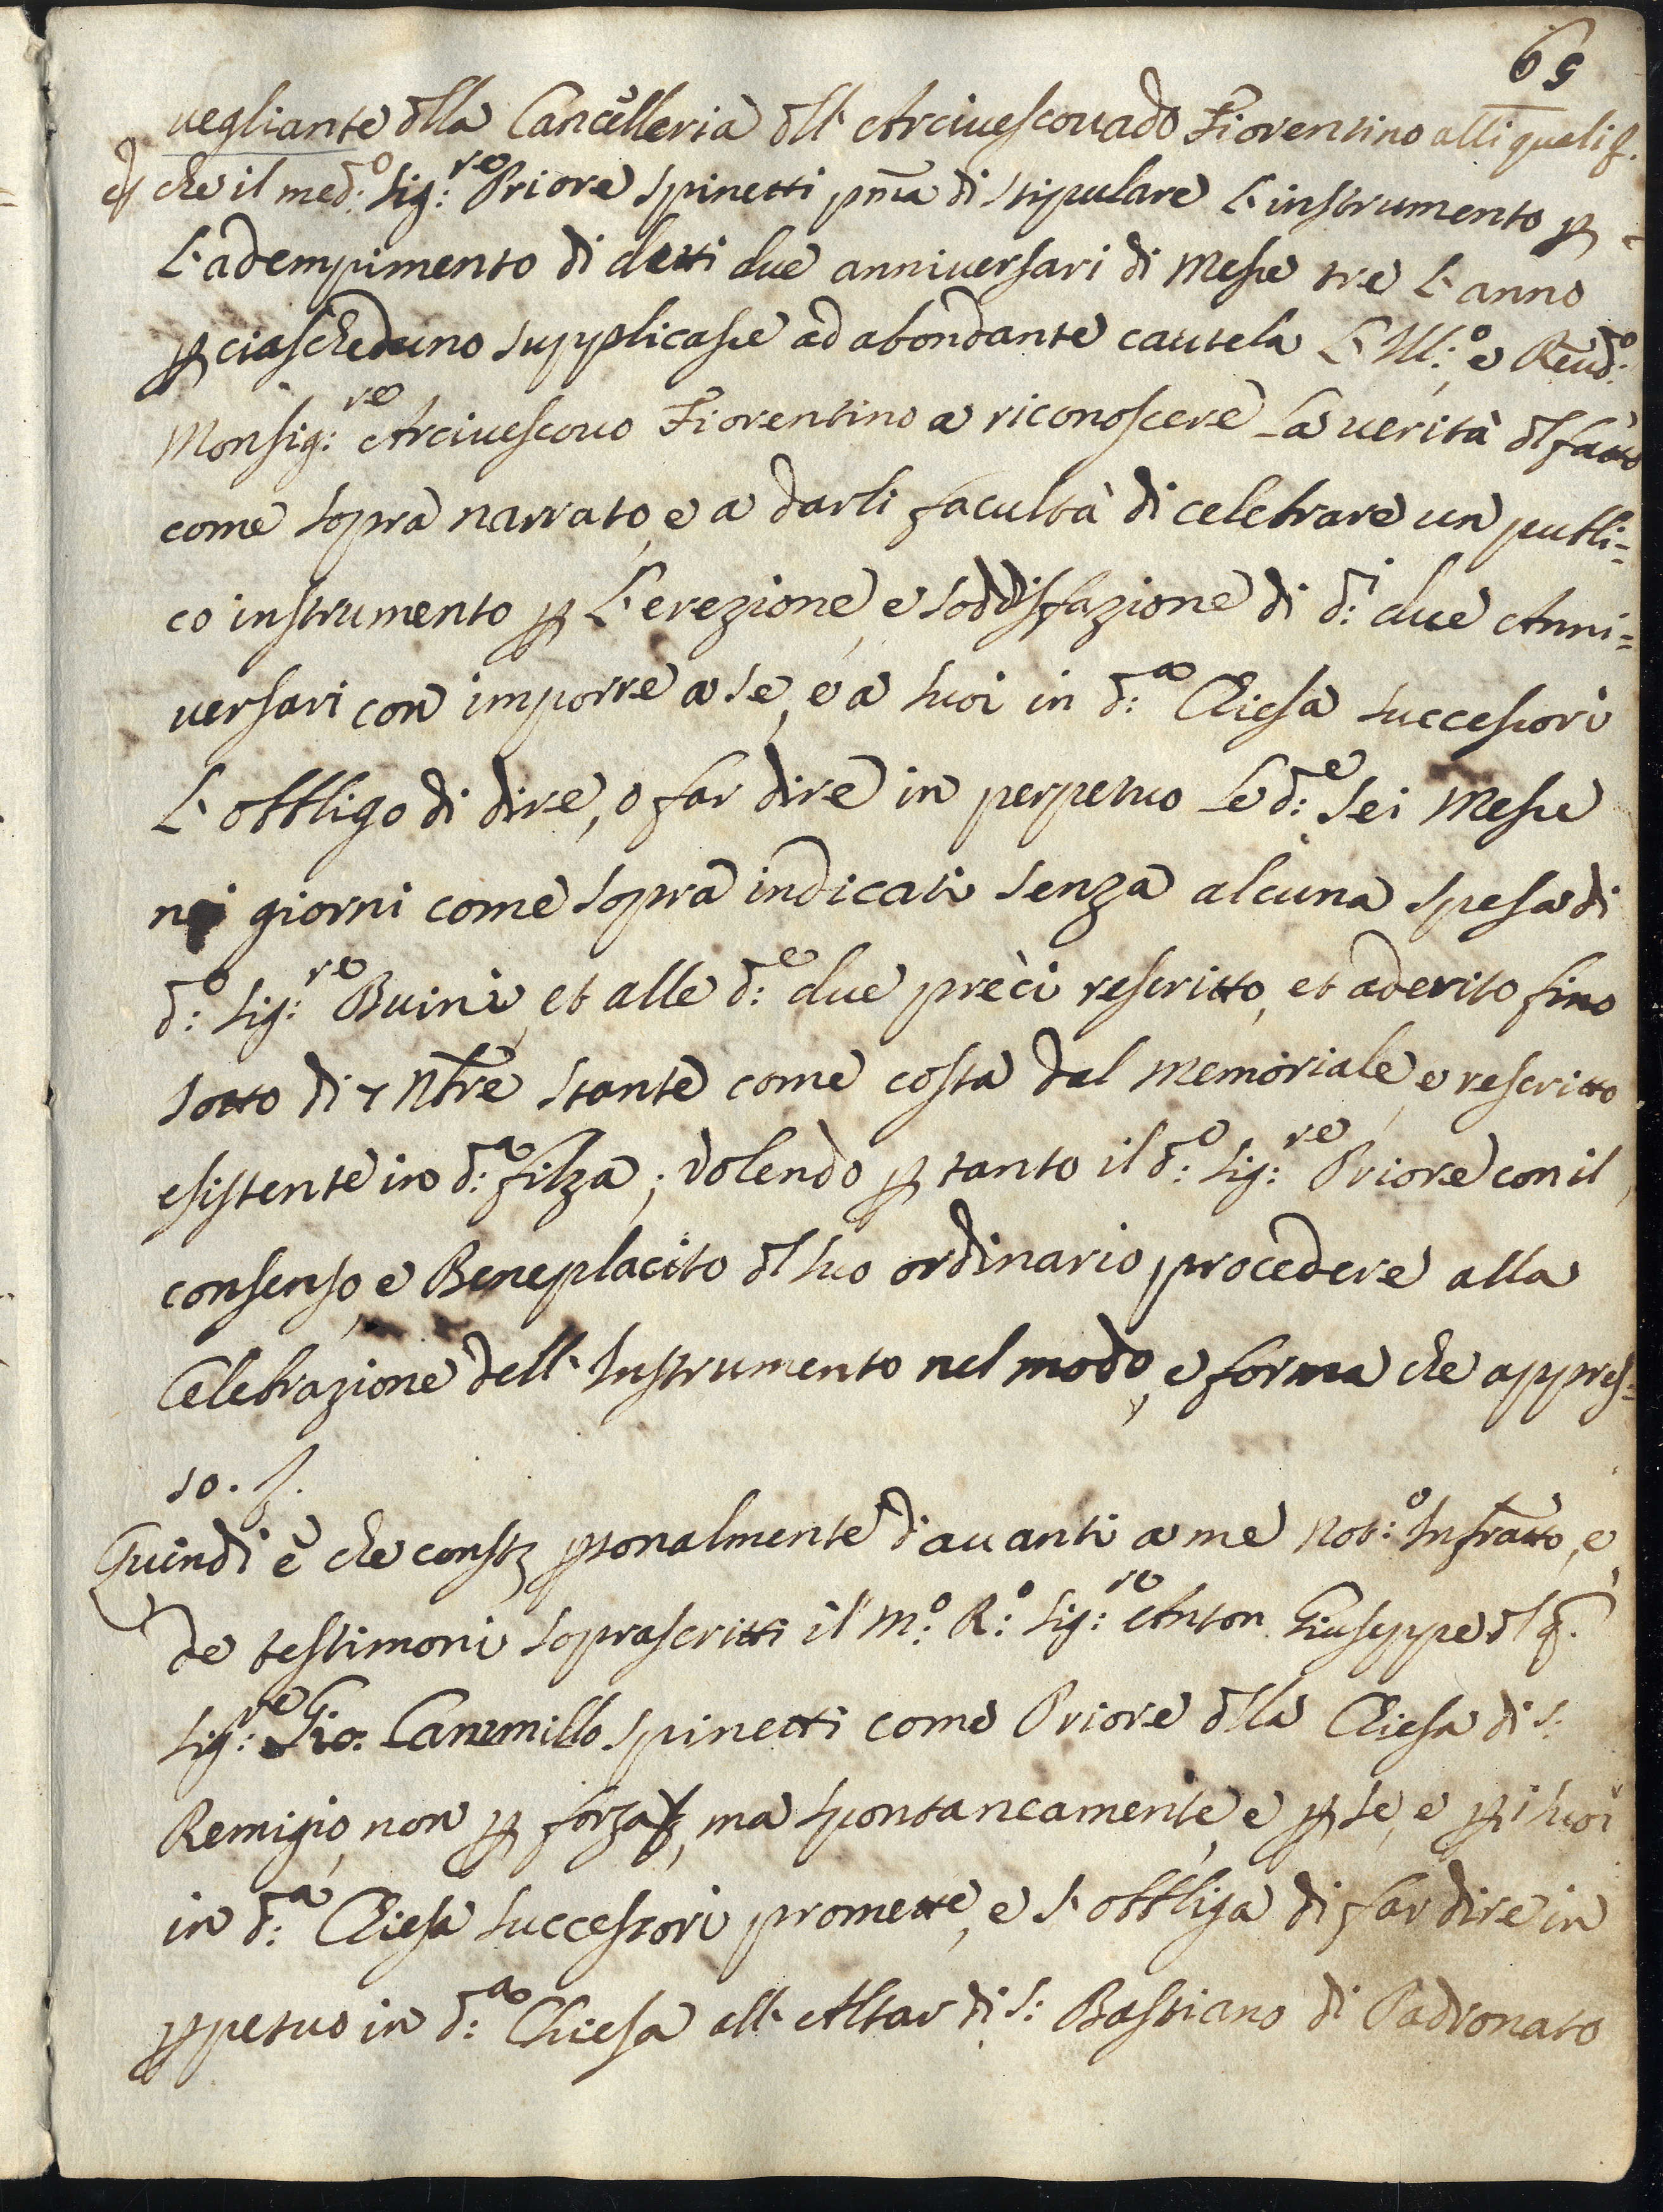 69
uegliante dlla Cancelleria dll' Arciuescouado Fiorentino alli quali &.
et che il med:o Sig:re Priore Spinetti pma di stipulare l'instrumento p
l'adempimento di detti due anniuersari di Messe tre l'anno
p ciascheduno supplicasse ad abondante cautela l'Ill:o e Reud:o
Monsig:re Arciuescouo Fiorentino a riconoscere la uerità dl fatto
come sopra narrato, e a darli facultà di celebrare un publi=
co instrumento p l'erezione, e soddisfazione di d:i due Anni=
uersari con imporre a se, e a suoi in d:a Chiesa successori
l'obbligo di dire, o far dire in perpetuo le d:e sei Messe
nei giorni come sopra indicati senza alcuna spesa di
d:o Sig:re Buini, et alle d:e due preci rescritto, et aderito fino
sotto di 7 Nbre stante come costa dal memoriale, e rescritto
esistente in d:a filza; Volendo p tanto il d:o Sig:re Priore con il
consenso, e Beneplacito dl suo ordinario procedere alla
Celebrazione dell'Instrumento nel modo, e forma che appres=
so. &.
Quindi è che consto psonalmente d'auanti a me Not:o Infratto, e
de testimoni soprascritti il M:o R:o Sig:re Anton Giuseppe dl q.
Sig:re Gio. Cammillo Spinetti come Priore dlla Chiesa di S:
Remigio, non p forza &, ma spontaneamente, e p se, e p i suoi
in d:a Chiesa successori promette, e s'obbliga di far dire in
ppetuo in d:a Chiesa all'Altar di S: Bastiano di Padronato